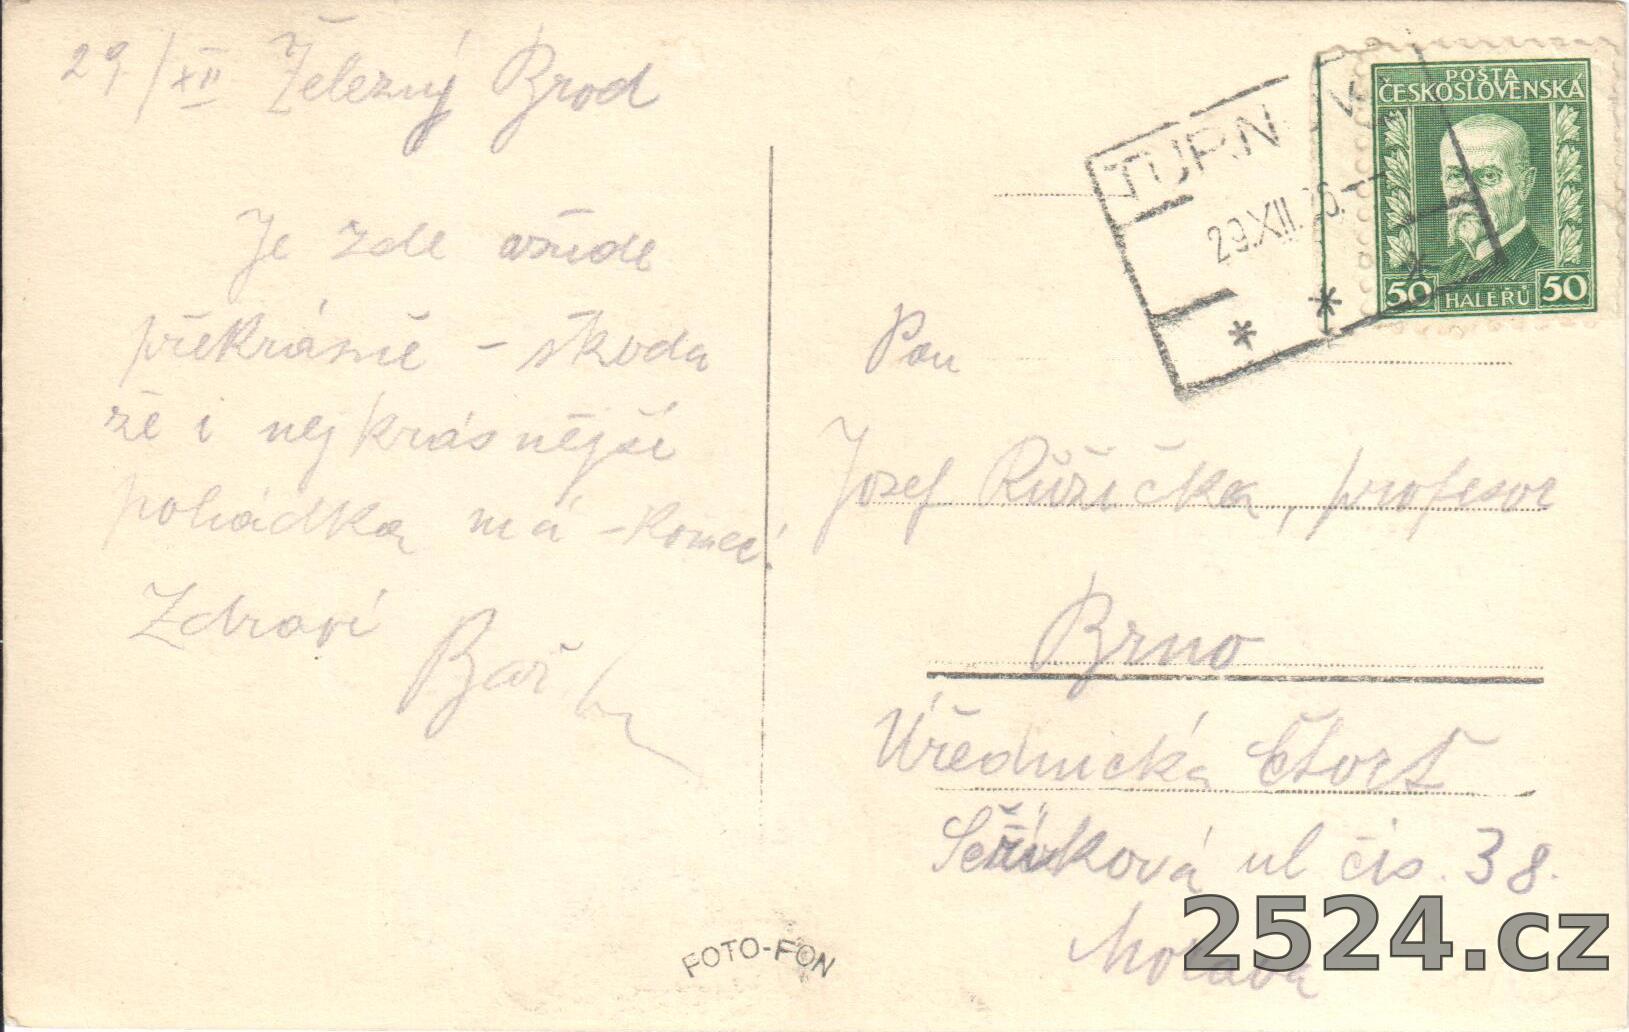 29/XII Železný Brod
Je zde všude
překrásně - škoda
že i nejkrásnější
pohádka má - konec!
Zdraví
FOTO-FON
TURNOV
29.XII.26.
* * *
POŠTA
ČESKOSLOVENSKÁ
50 HALÉŘŮ 50
Pan
Josef Růžička, profesor
Brno
Úřednická čtvrť
Seříková ul čís. 38.
Morava
2524.cz